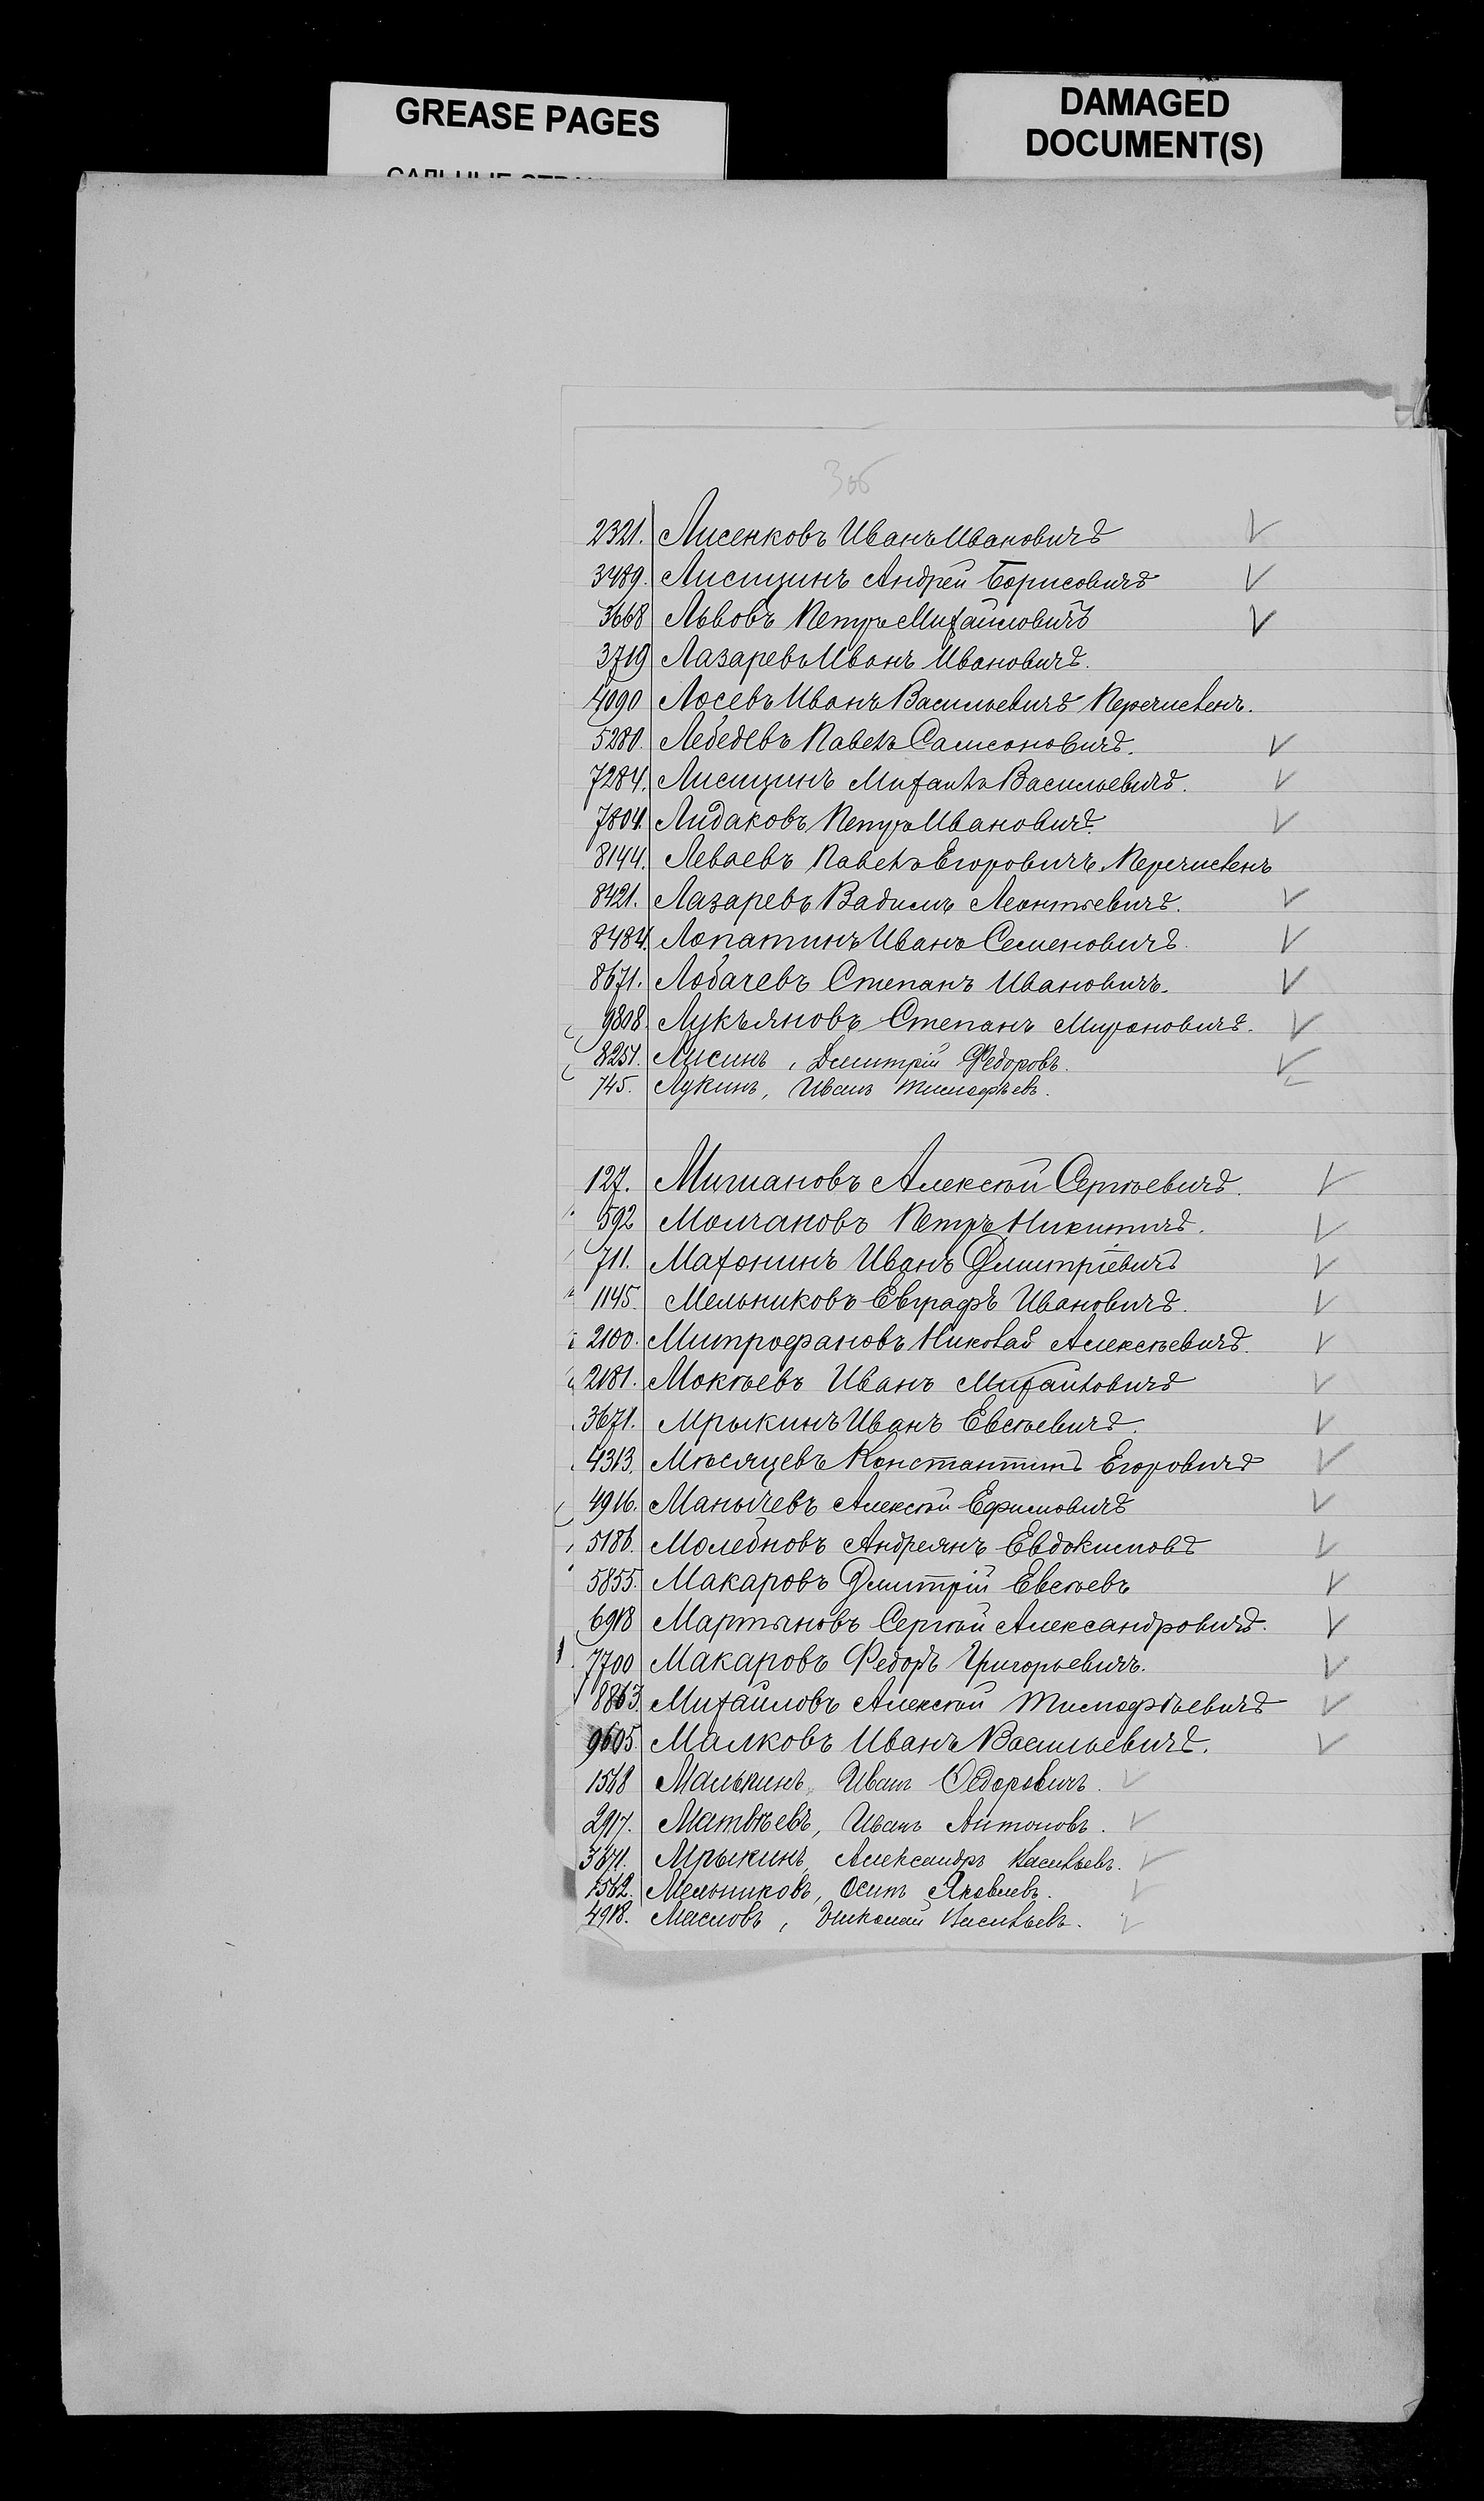 GREASE PAGES
DAMAGED
DOCUMENT(S)
3об
2321. Лисенковъ Иванъ Ивановичъ
3489. Лисицинъ Андрей Борисовичъ
3668 Львовъ Петръ Михайловичъ
3719 Лазаревъ Иванъ Ивановичъ.
4090 Лосевъ Иванъ Васильевичъ Перечисленъ.
5280. Лебедевъ Павелъ Самсоновичъ.
7284. Лисицинъ Михаилъ Васильевичъ.
7804. Лидаковъ Петръ Ивановичъ.
8144. Леваевъ Павелъ Егоровичъ Перечисленъ
8421. Лазаревъ Вадимъ Леонтьевичъ.
8484. Лопатинъ Иванъ Семеновичъ.
8671. Лобачевъ Степанъ Ивановичъ.
9808. Лукъяновъ Степанъ Мироновичъ.
8251. Лисинъ, Дмитрій Федоровъ.
745. Лукинъ, Иванъ Тимофѣевъ.
127. Алексѣй Сергѣевичъ.
592 Молчановъ Петръ Никитичъ.
711. Махонинъ Иванъ Дмитріевичъ
1145. Мельниковъ Евграфъ Ивановичъ.
2100. Митрофановъ Николай Алексѣевичъ.
2181. Мокѣевъ Иванъ Михайловичъ
3671. Мрыкинъ Иванъ Евсѣевичъ.
4313. Мѣсяцевъ Константинъ Егоровичъ
4916. Манычевъ Алексѣй Ефимовичъ
5186. Андреянъ Евдокимовъ
5855. Макаровъ Дмитрій Евсѣевъ
6918 Мартыновъ Сергѣй Александровичъ.
7700 Макаровъ Федоръ Григорьевичъ.
8863. Михайловъ Алексѣй Тимофѣевичъ
9605. Малковъ Иванъ Васильевичъ.
1568 Малькинъ, Иванъ Ѳедоровичъ.
2917. Матвѣевъ, Иванъ Антоновъ.
3671. Мрыкинъ, Александръ Васильевъ.
1562. Мельниковъ, Осипъ Яковлевъ.
4918. Масловъ, Николай Васильевъ.